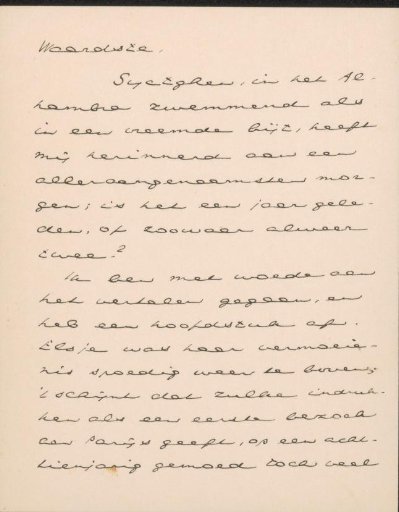 Waardste,
Sijtghen, in het Al-
hambra zwemmend als
in een vreemde bijt, heeft
mij herinnerd aan een
alleraangenaamsten mor-
gen; is het een jaar gele-
den, of zoowaar alweer
twee?
Ik ben met woede aan
het vertalen gegaan, en
heb een hoofdstuk af.
Elsje was haar vermoeie-
nis spoedig weer te boven;
't schijnt dat zulke indruk-
ken als een eerste bezoek
aan Parijs geeft, op een acht-
tienjarig gemoed toch veel